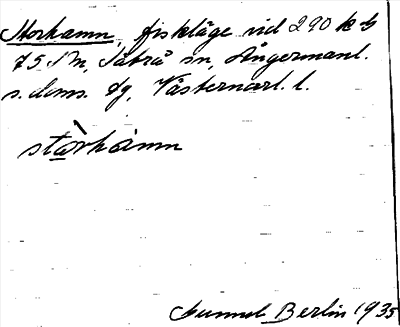 Storhamn, fiskläge vid 290 k b
75 S m, Säbrå sn, Ångermanl.
s. doms. dg, Västernorrl. l.
stòrhamn
Gunnel Berlin 1935